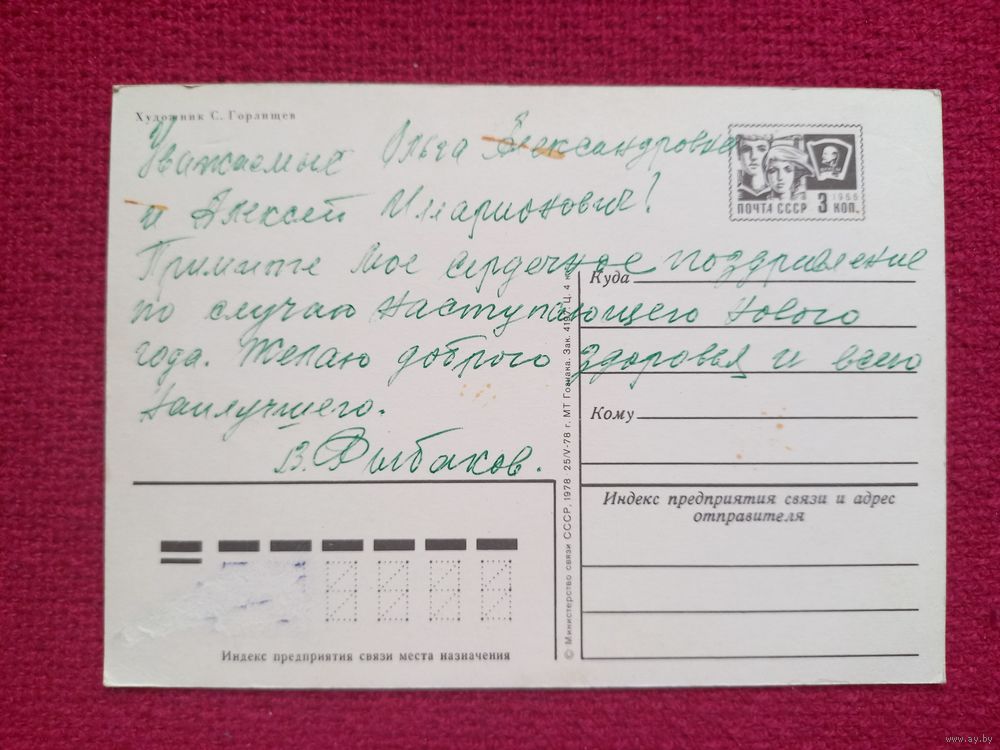 Художник С. Горлищев
Уважаемые Ольга Александровна
и Алексей Иларионович!
Примите мое сердечное поздравление
по случаю наступающего Нового
года. Желаю доброго здоровья и всего
наилучшего.
В. Рыбаков.
ПОЧТА СССР 3 КОП.
1966
Куда
Кому
Индекс предприятия связи и адрес
отправителя
© Министерство связи СССР, 1978 · 25/V-78 г. МТ Гознака. Зак. Ц. 4 к.
Индекс предприятия связи места назначения
www.ay.by